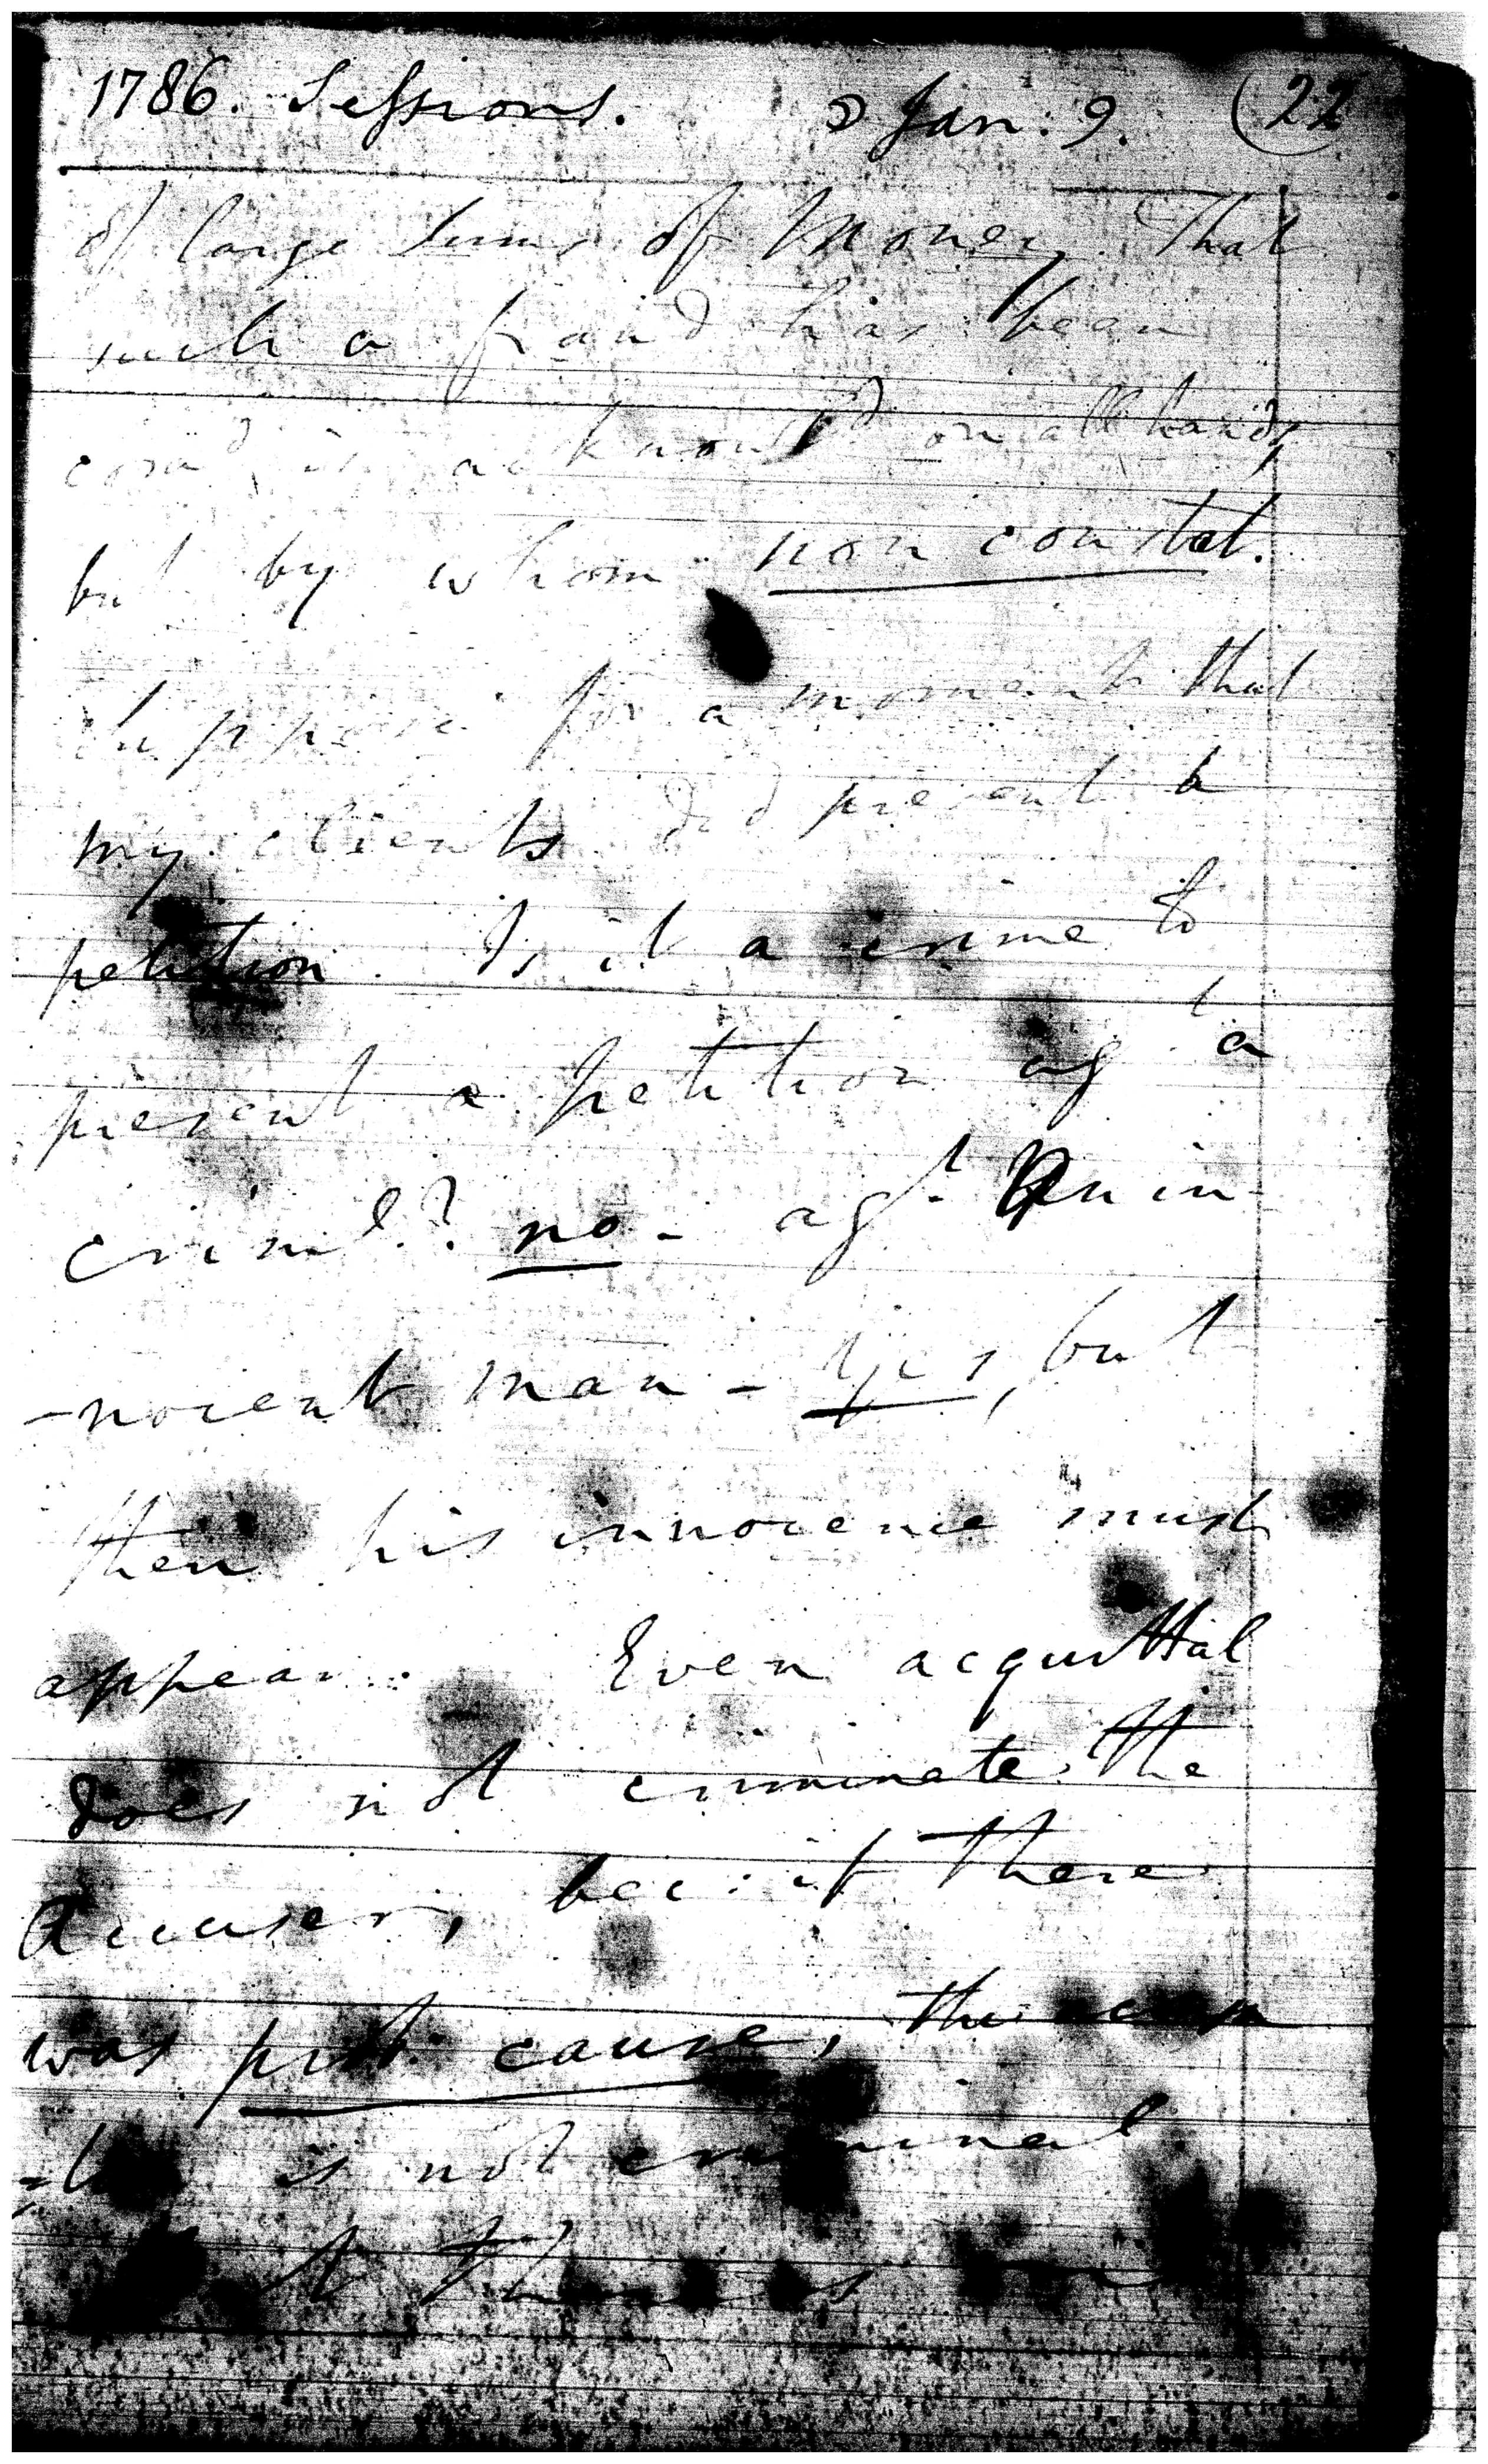 1786. Sessions. ☽ Jan: 9. (22
of large sums of Money. That
such a fraud has been
com^d is acknowl^d on all hands,
but by whom non constat.
Suppose for a moment that
my clients did present a
petition. Is it a crime to
present a petition ag^t a
criml.? no - ag^t an in-
-nocent man - yes, but
then his innocence must
appear. Even acquittal
does not criminate the
Accuser, bec: if there
was prob: cause, the
is not criminal